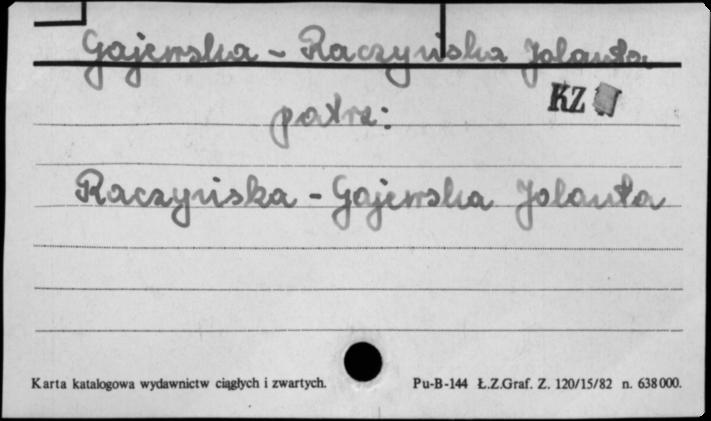 Gajewska - Raczyńska Jolanta
KZ
patrz:
Raczyńska - Gajewska Jolanta
Karta katalogowa wydawnictw ciągłych i zwartych.
Pu-B-144 Ł.Z.Graf. Z. 120/15/82 n. 638000.